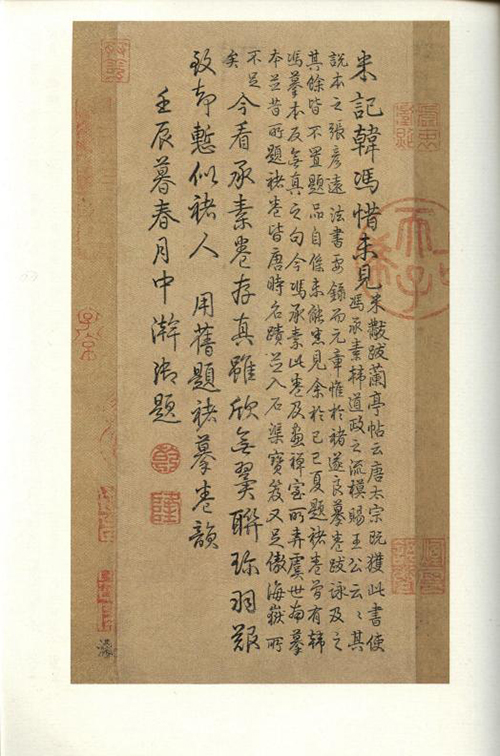 米記韓馮惜未見
米黻跋蘭亭帖云唐太宗既獲此書使
馮承素韓道政之流模賜王公云云其
說本之張彥遠法書要錄而元章惟於褚遂良摹卷跋詠及之
其餘皆不置題品自係未能悉見余於己巳夏題褚卷曾有韓
馮摹本反無真之句今馮承素此卷及畫禪室所弆虞世南摹
本並昔所題褚卷皆唐時名蹟並入石渠寶笈又足傲海嶽所
不足
矣
今看承素卷存真雖欣無翼聯珎羽艱
致却慙似褚人 用舊題褚摹卷韻
壬辰暮春月中澣御題
乾
隆